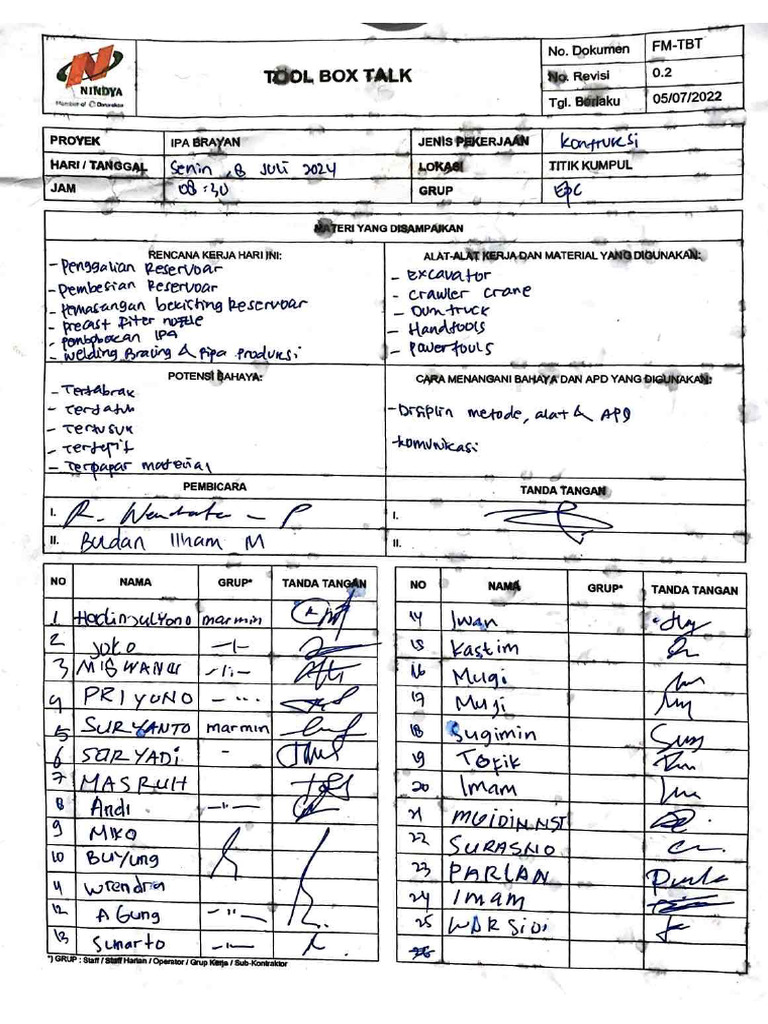 NINDYA
Member of Danareksa
TOOL BOX TALK
No. Dokumen FM-TBT
No. Revisi 0.2
Tgl. Berlaku 05/07/2022
PROYEK IPA BRAYAN JENIS PEKERJAAN Kontruksi
HARI / TANGGAL Senin, 8 Juli 2024 LOKASI TITIK KUMPUL
JAM 08:30 GRUP EPC
MATERI YANG DISAMPAIKAN
RENCANA KERJA HARI INI:
- Penggalian Reservoar
- Pembesian Reservoar
- Pemasangan bekisting Reservoar
- Precast Filter nozzle
- Pembobokan IPA
- Welding Bracing & Pipa Produksi
ALAT-ALAT KERJA DAN MATERIAL YANG DIGUNAKAN:
- Excavator
- Crawler crane
- Dumtruck
- Handtools
- Powertools
POTENSI BAHAYA:
- Tertabrak
- Terjatuh
- Tertusuk
- Terjepit
- Terpapar material
CARA MENANGANI BAHAYA DAN APD YANG DIGUNAKAN:
- Disiplin metode, alat & APD
- Komunikasi
PEMBICARA TANDA TANGAN
I. R. I.
II. Budan Ilham M II.
NO NAMA GRUP* TANDA TANGAN
1 Hadinsulyono marmin
2 Joko -"-
3 MISWANU -"-
4 PRIYONO -"-
5 SURYANTO marmin
6 SURYADI -
7 MASRUH
8 Andi -"-
9 MIKO
10 BUYUNG
11 Wrendra
12 AGung -"-
13 Sunarto -"-
NO NAMA GRUP* TANDA TANGAN
14 Iwan
15 Kastim
16 Mugi
17 Muji
18 Sugimin
19 Topik
20 Imam
21 MUIDIN.NST
22 SURASNO
23 PARLAN
24 Imam
25 WARSIDI
26
*) GRUP : Staff / Staff Harian / Operator / Grup Kerja / Sub-Kontraktor